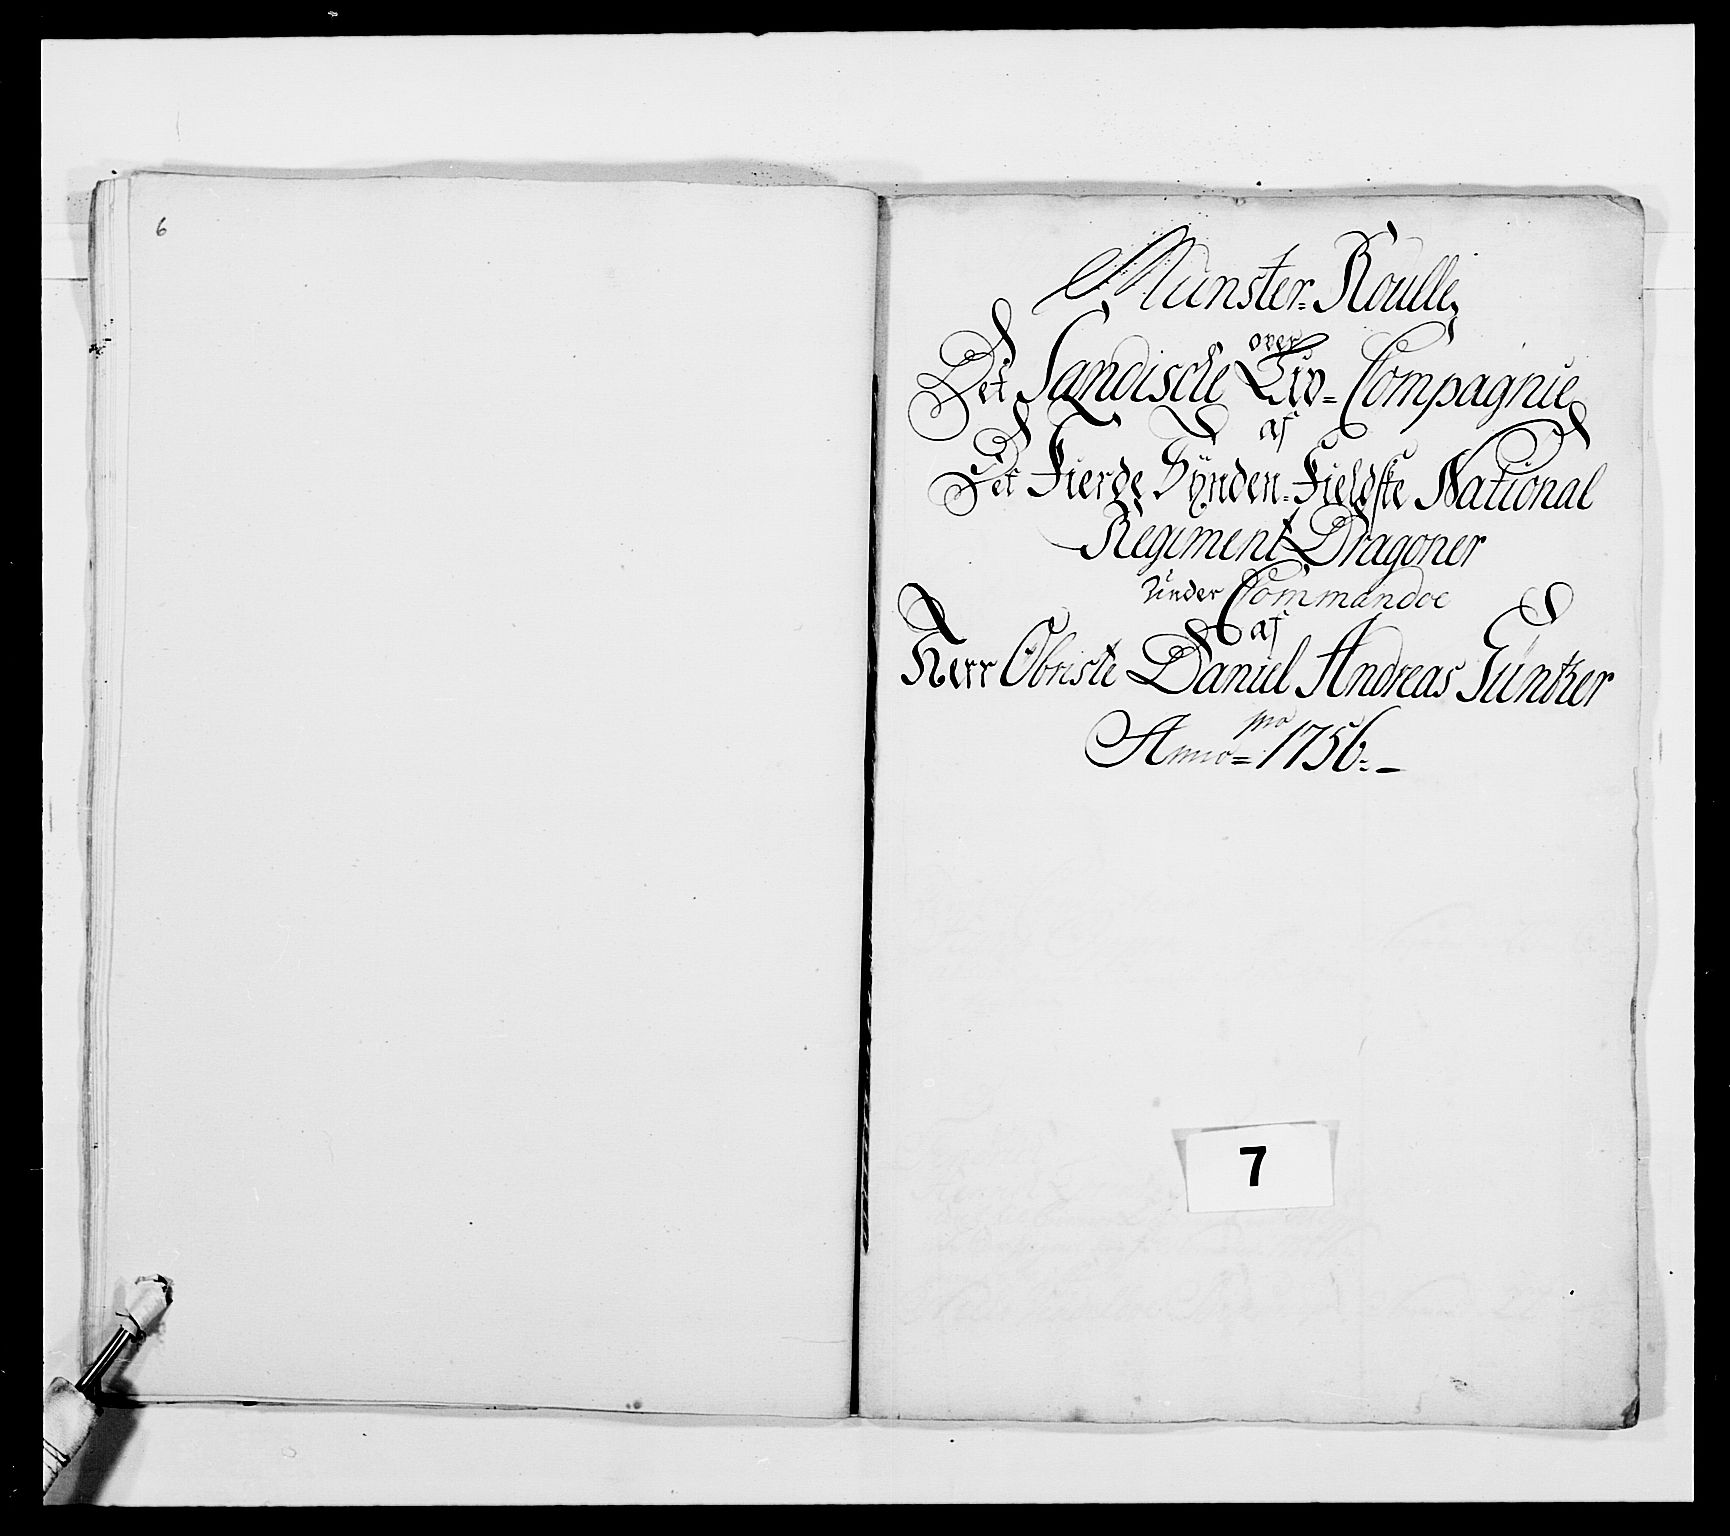 6
Munster-Roulle,
over
Det Sandische Liv-Compagnie
af
Det Fierde Synden-Fieldske National
Regiment Dragoner
Under Commandoe
af
Herr Obriste Daniel Andreas Günther
pro
Anno = 1756. -
7